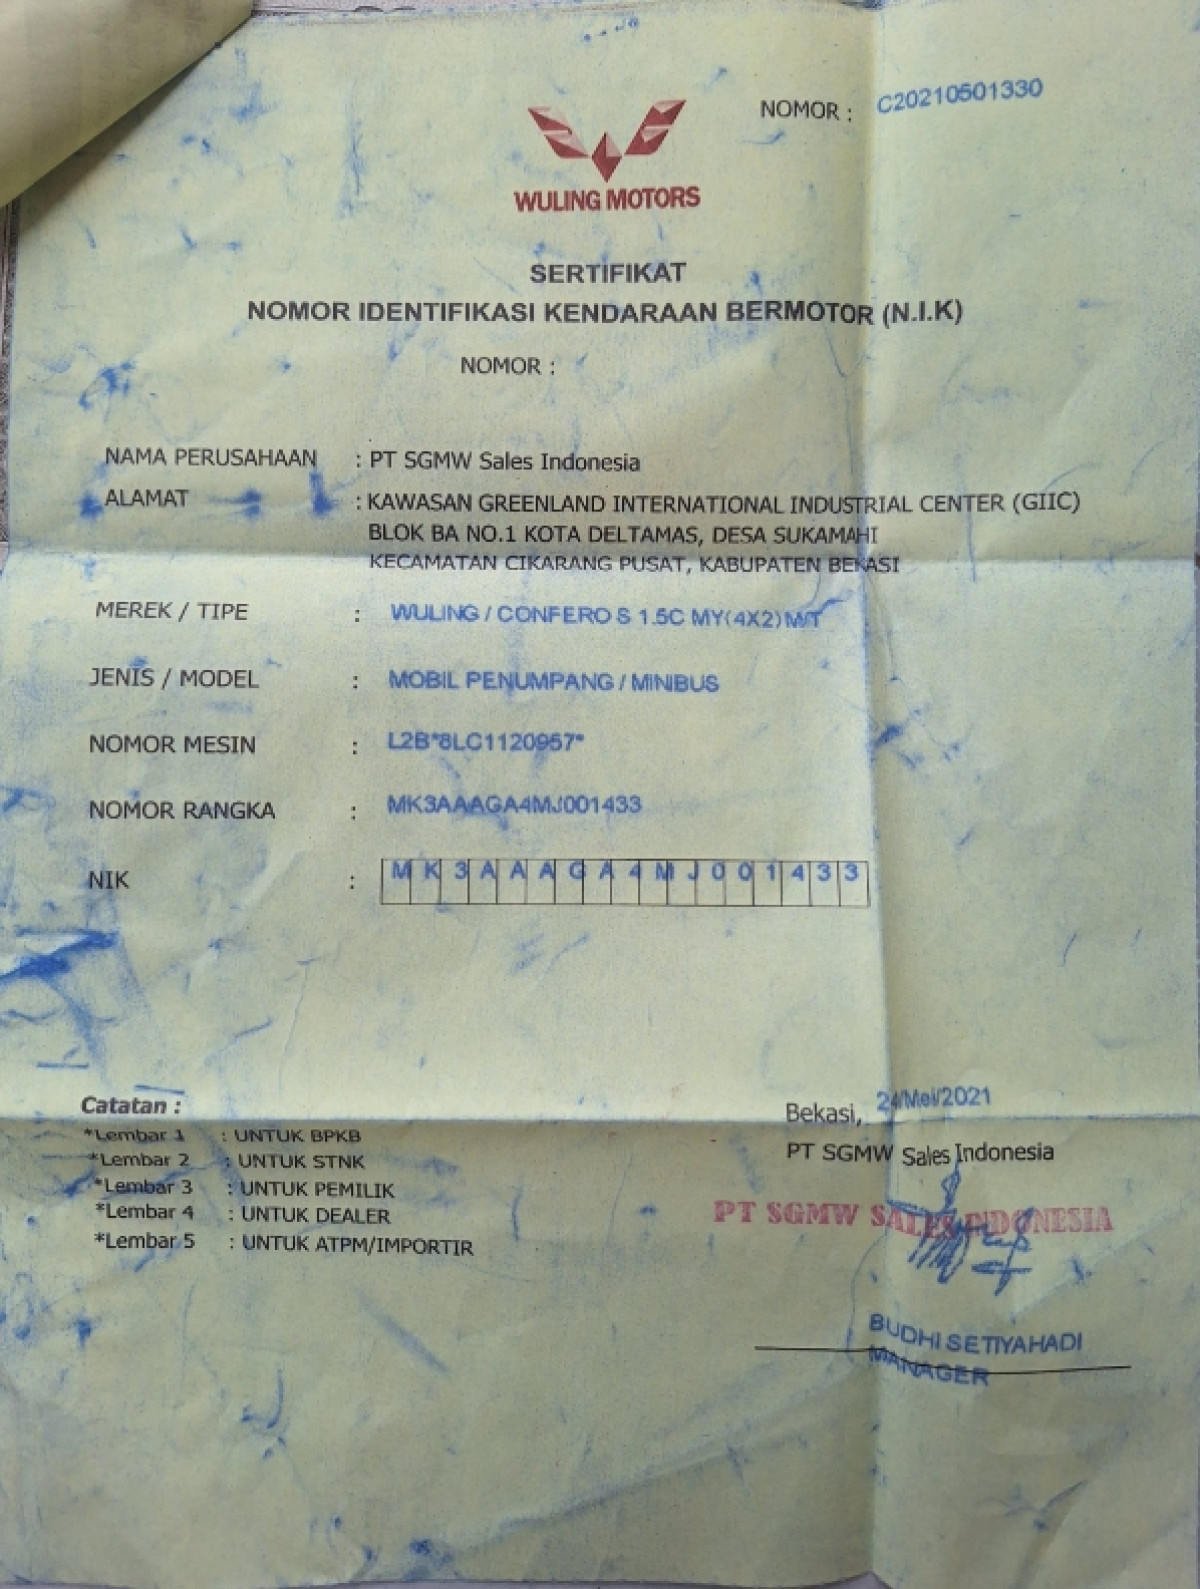 NOMOR : C20210501330
WULING MOTORS
SERTIFIKAT
NOMOR IDENTIFIKASI KENDARAAN BERMOTOR (N.I.K)
NOMOR :
NAMA PERUSAHAAN : PT SGMW Sales Indonesia
ALAMAT : KAWASAN GREENLAND INTERNATIONAL INDUSTRIAL CENTER (GIIC)
BLOK BA NO.1 KOTA DELTAMAS, DESA SUKAMAHI
KECAMATAN CIKARANG PUSAT, KABUPATEN BEKASI
MEREK / TIPE : WULING / CONFERO S 1.5C MY(4X2) M/T
JENIS / MODEL : MOBIL PENUMPANG / MINIBUS
NOMOR MESIN : L2B*8LC1120957*
NOMOR RANGKA : MK3AAAGA4MJ001433
NIK : M K 3 A A A G A 4 M J 0 0 1 4 3 3
Catatan :
*Lembar 1 : UNTUK BPKB
*Lembar 2 : UNTUK STNK
*Lembar 3 : UNTUK PEMILIK
*Lembar 4 : UNTUK DEALER
*Lembar 5 : UNTUK ATPM/IMPORTIR
Bekasi, 24/Mei/2021
PT SGMW Sales Indonesia
PT SGMW SALES INDONESIA
BUDHI SETIYAHADI
MANAGER